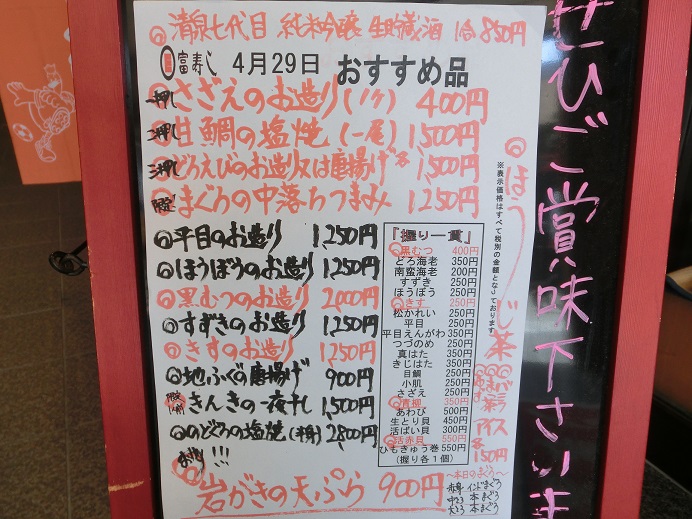 ◎清泉七代目 純米吟醸 生貯蔵酒 1合 850円
富寿し 4月29日 おすすめ品
一押し さざえのお造り(1ケ) 400円
二押し 甘鯛の塩焼(一尾) 1,500円
三押し どろえびのお造り又は唐揚げ 各1,500円
限定 まぐろの中落ちつまみ 1,250円
◎平目のお造り 1,250円
◎ほうぼうのお造り 1,250円
◎黒むつのお造り 2,000円
◎すずきのお造り 1,250円
◎きすのお造り 1,250円
◎地ふぐの唐揚げ 900円
きんきの一夜干し 1,500円
◎のどぐろの塩焼(半身) 2,800円
!!!
岩がきの天ぷら 900円
「握り一貫」
◎黒むつ 400円
どろ海老 350円
南蛮海老 200円
すずき 250円
ほうぼう 250円
◎きす 250円
松かれい 250円
平目 250円
平目えんがわ 350円
つづのめ 250円
真はた 350円
きじはた 350円
目鯛 250円
小肌 250円
さざえ 250円
◎青柳 350円
あわび 500円
生とり貝 450円
活ばい貝 300円
◎活赤貝 550円
ひもきゅう巻 550円
(握り各1個)
※表示価格はすべて税別の金額となっております
◎ほうじ茶
バニラ
抹茶
ゆず
アイス
各150円
~本日のまぐろ~
赤身 インドまぐろ
中とろ 本まぐろ
大とろ 本まぐろ
ぜひご賞味下さいま